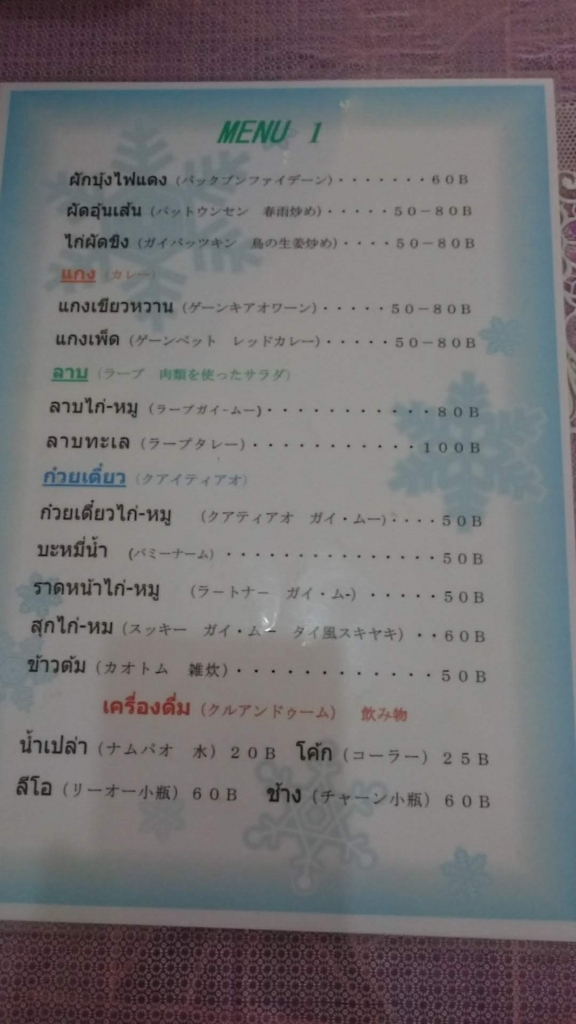 MENU 1
ผักบุ้งไฟแดง (パックブンファイデーン)・・・・・・・60B
ผัดอุ้นเส้น (パットウンセン 春雨炒め)・・・・・50-80B
ไก่ผัดขิง (ガイパッツキン 鳥の生姜炒め)・・・・50-80B
แกง (カレー)
แกงเขียวหวาน (ゲーンキアオワーン)・・・・・50-80B
แกงเพ็ด (ゲーンペット レッドカレー)・・・・・50-80B
ลาบ (ラープ 肉類を使ったサラダ)
ลาบไก่-หมู (ラープガイ-ムー)・・・・・・・・・・・80B
ลาบทะเล (ラープタレー)・・・・・・・・・・・100B
ก๋วยเตี๋ยว (クアイティアオ)
ก๋วยเตี๋ยวไก่-หมู (クアティアオ ガイ・ムー)・・・・50B
บะหมี่น้ำ (バミーナーム)・・・・・・・・・・・・・・50B
ราดหน้าไก่-หมู (ラートナー ガイ・ム-)・・・・・50B
สุกไก่-หม (スッキー ガイ・ムー タイ風スキヤキ)・・60B
ข้าวต้ม (カオトム 雑炊)・・・・・・・・・・・・50B
เครื่องดื่ม (クルアンドゥーム) 飲み物
น้ำเปล่า (ナムパオ 水) 20B โค้ก (コーラー) 25B
ลีโอ (リーオー小瓶) 60B ช้าง (チャーン小瓶) 60B